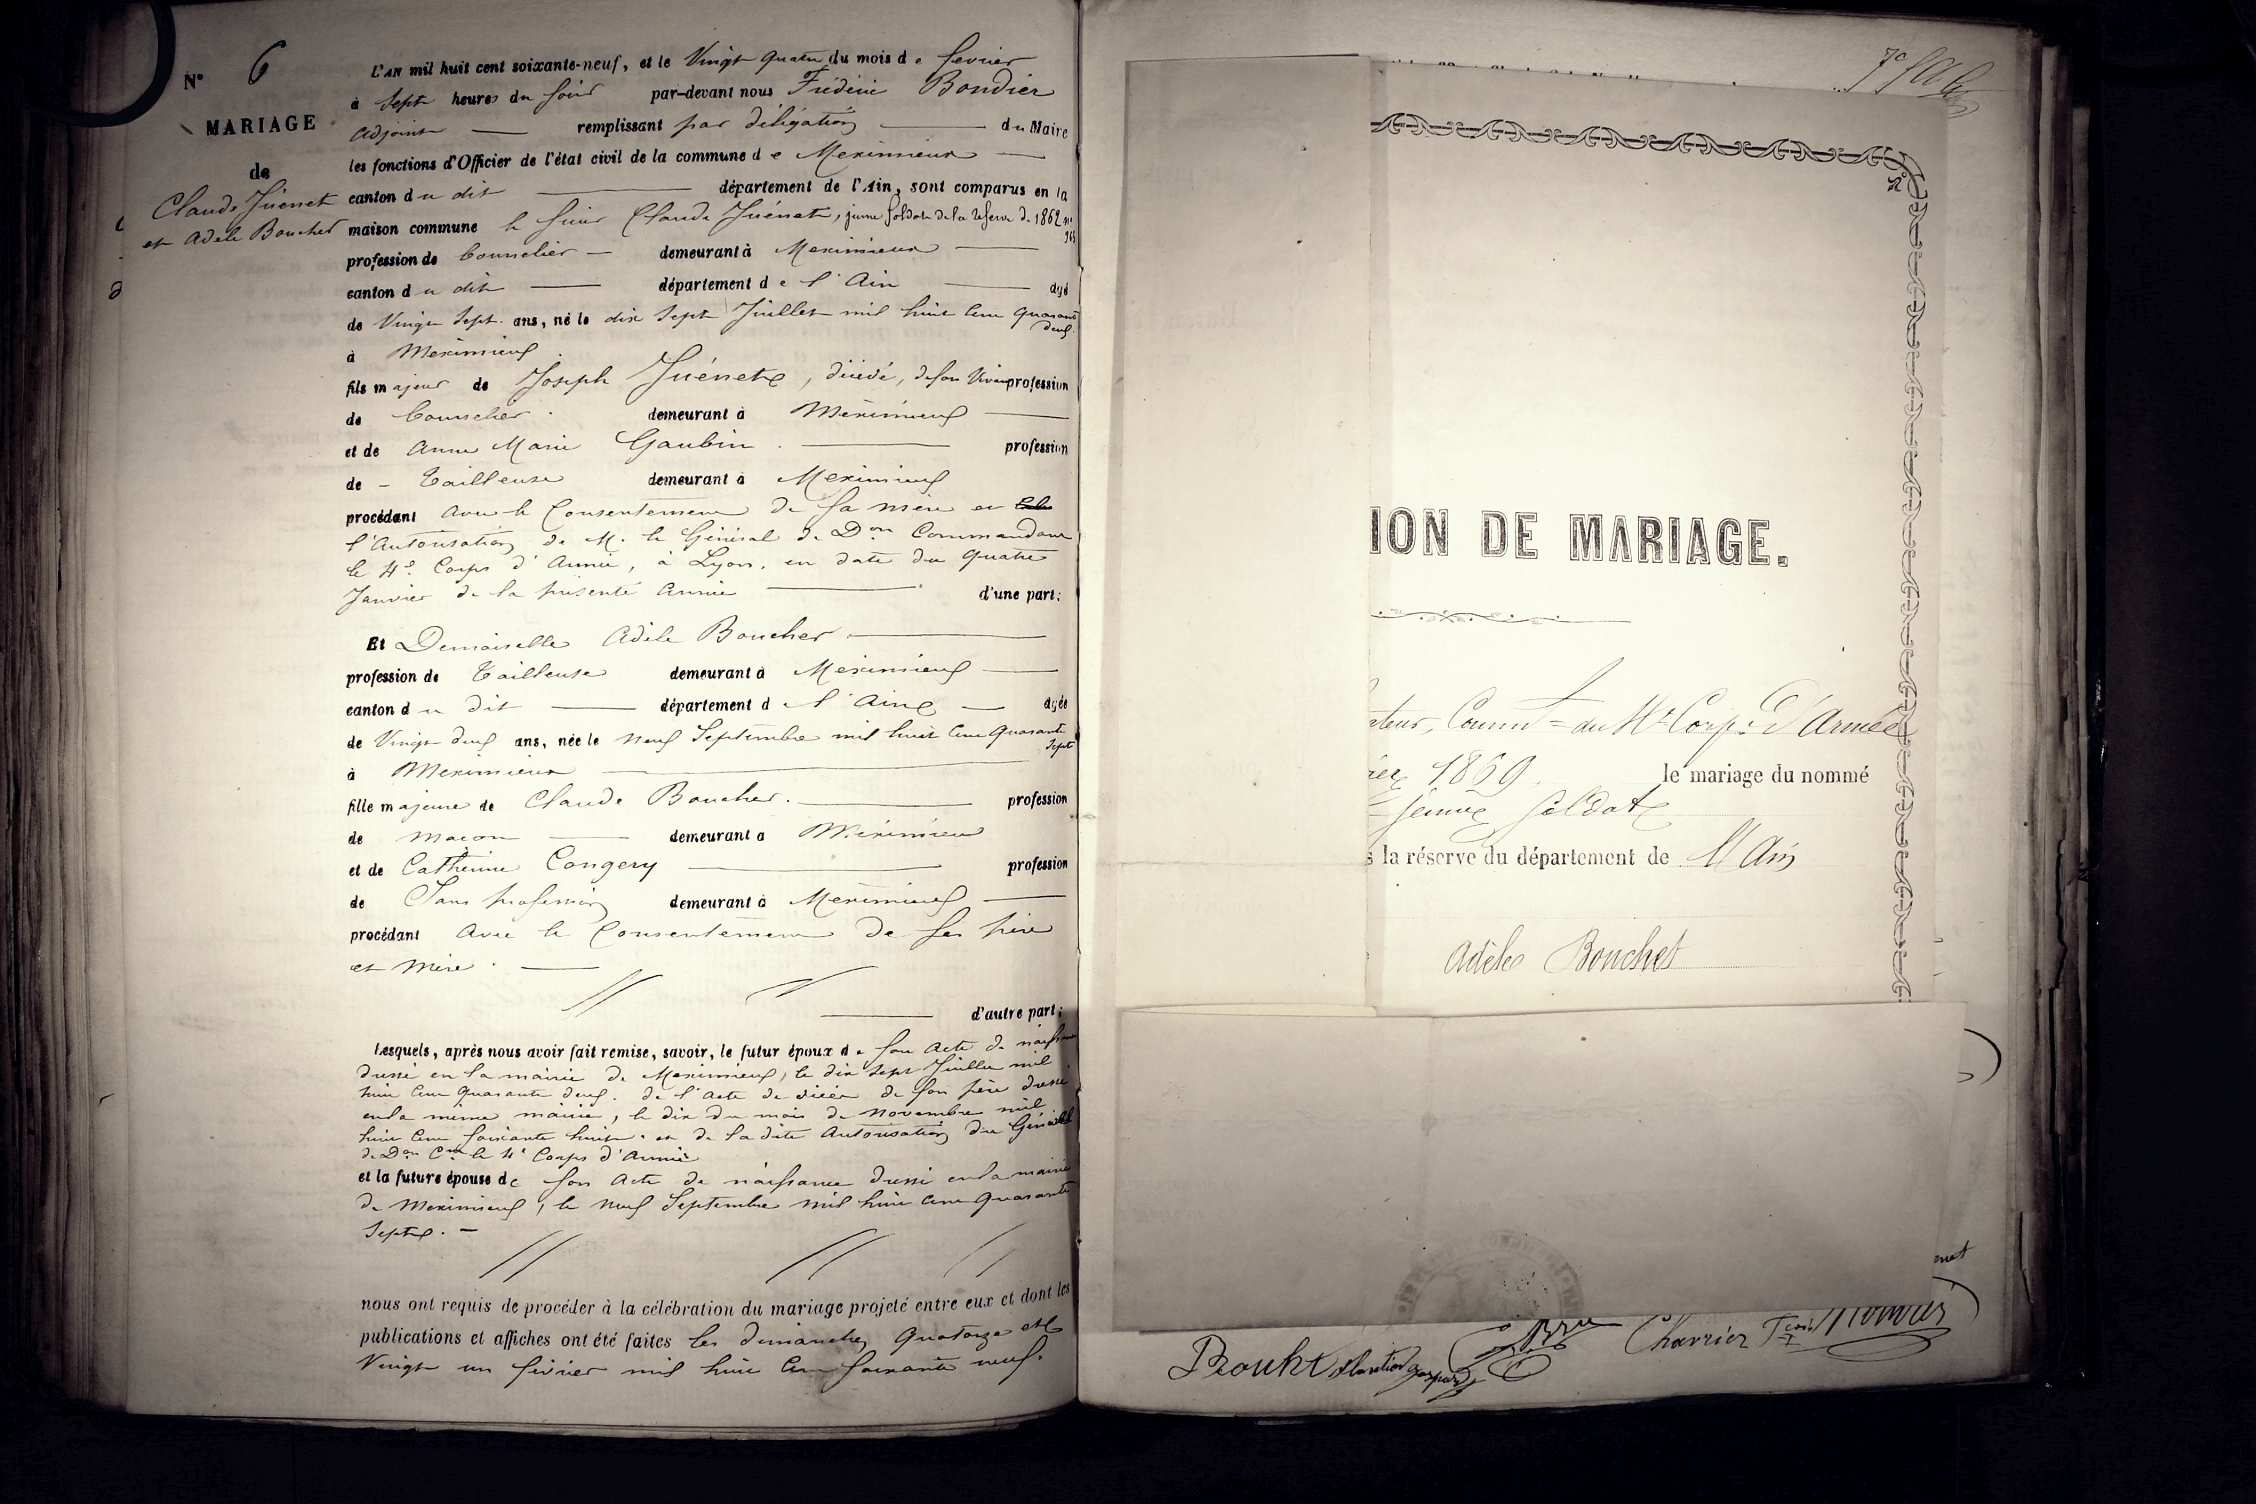 N° 6
MARIAGE
de
Claude Juénet
et Adèle Boucher
L'AN mil huit cent soixante-neuf, et le Vingt quatre du mois de février
à Sept heures du soir par-devant nous Frédéric Bondier
adjoint remplissant par délégation du Maire
les fonctions d'Officier de l'état civil de la commune de Meximieux
canton du dit département de l'Ain, sont comparus en la
maison commune le sieur Claude Juénet, jeune soldat de la réserve de 1862 n°
profession de Bourrelier demeurant à Meximieux
canton du dit département de l'Ain âgé
de Vingt Sept ans, né le dix sept Juillet mil huit cent quarante
deux.
à Meximieux.
fils majeur de Joseph Juénet, décédé, de son vivant profession
de Bourrelier. demeurant à Meximieux
et de Anne Marie Gaubin. profession
de - Tailleuse demeurant à Meximieux
procédant avec le consentement de sa mère et
l'Autorisation de M. le Général de Don Commandant
le 4e Corps d'Armée, à Lyon, en date du quatre
Janvier de la présente Année d'une part:
Et Demoiselle Adèle Boucher
profession de Tailleuse demeurant à Meximieux
canton du dit département de l'Ain âgée
de Vingt deux ans, née le neuf Septembre mil huit cent quarante
sept
à Meximieux
fille majeure de Claude Boucher. profession
de maçon demeurant à Meximieux
et de Catherine Congery profession
de Sans profession demeurant à Meximieux
procédant avec le consentement de ses père
et mère.
d'autre part;
Lesquels, après nous avoir fait remise, savoir, le futur époux de son acte de naissance
dressé en la mairie de Meximieux, le dix sept Juillet mil
huit cent quarante deux. de l'acte de décès de son père dressé
en la même mairie, le dix du mois de Novembre mil
huit cent soixante huit. et de la dite Autorisation du Général
de Don Cnt le 4e Corps d'Armée
et la future épouse de son acte de naissance dressé en la mairie
de Meximieux, le neuf Septembre mil huit cent quarante
Sept. -
nous ont requis de procéder à la célébration du mariage projeté entre eux et dont les
publications et affiches ont été faites les dimanches quatorze et
Vingt un février mil huit cent soixante neuf.
ION DE MARIAGE.
ateur, Commt du 4e Corps d'Armée
ier 1869. le mariage du nommé
jeune Soldat
s la réserve du département de l'Ain
Adèle Bouchet
net
Charrier